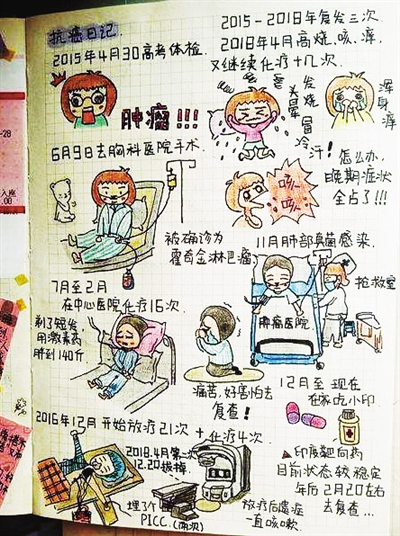 抗癌日记
2015年4月30高考体检.
肿瘤!!!
6月9日去胸科医院手术.
被确诊为
霍奇金淋巴瘤
7月至2月
在中心医院化疗16次
剃了短发
用激素药
胖到140斤.
痛苦,好害怕去
复查!
2016年12月 开始放疗21次 + 化疗4次.
2018.4月第二次
2.20拔掉.
埋了3个
PICC.(两次)
放疗后遗症
一直咳嗽.
2015-2018年复发三次
2018年4月高烧、咳、痒
又继续化疗十几次
发烧
头晕
冒冷汗!
浑身痒
咳~
咳~
怎么办,
晚期症状
全占了!!!
11月肺部真菌感染.
抢救室
肿瘤医院
12月至 现在
在家吃小印.
印度靶向药
目前状态较稳定
年后2月20左右
去复查...
-28
入座
.00